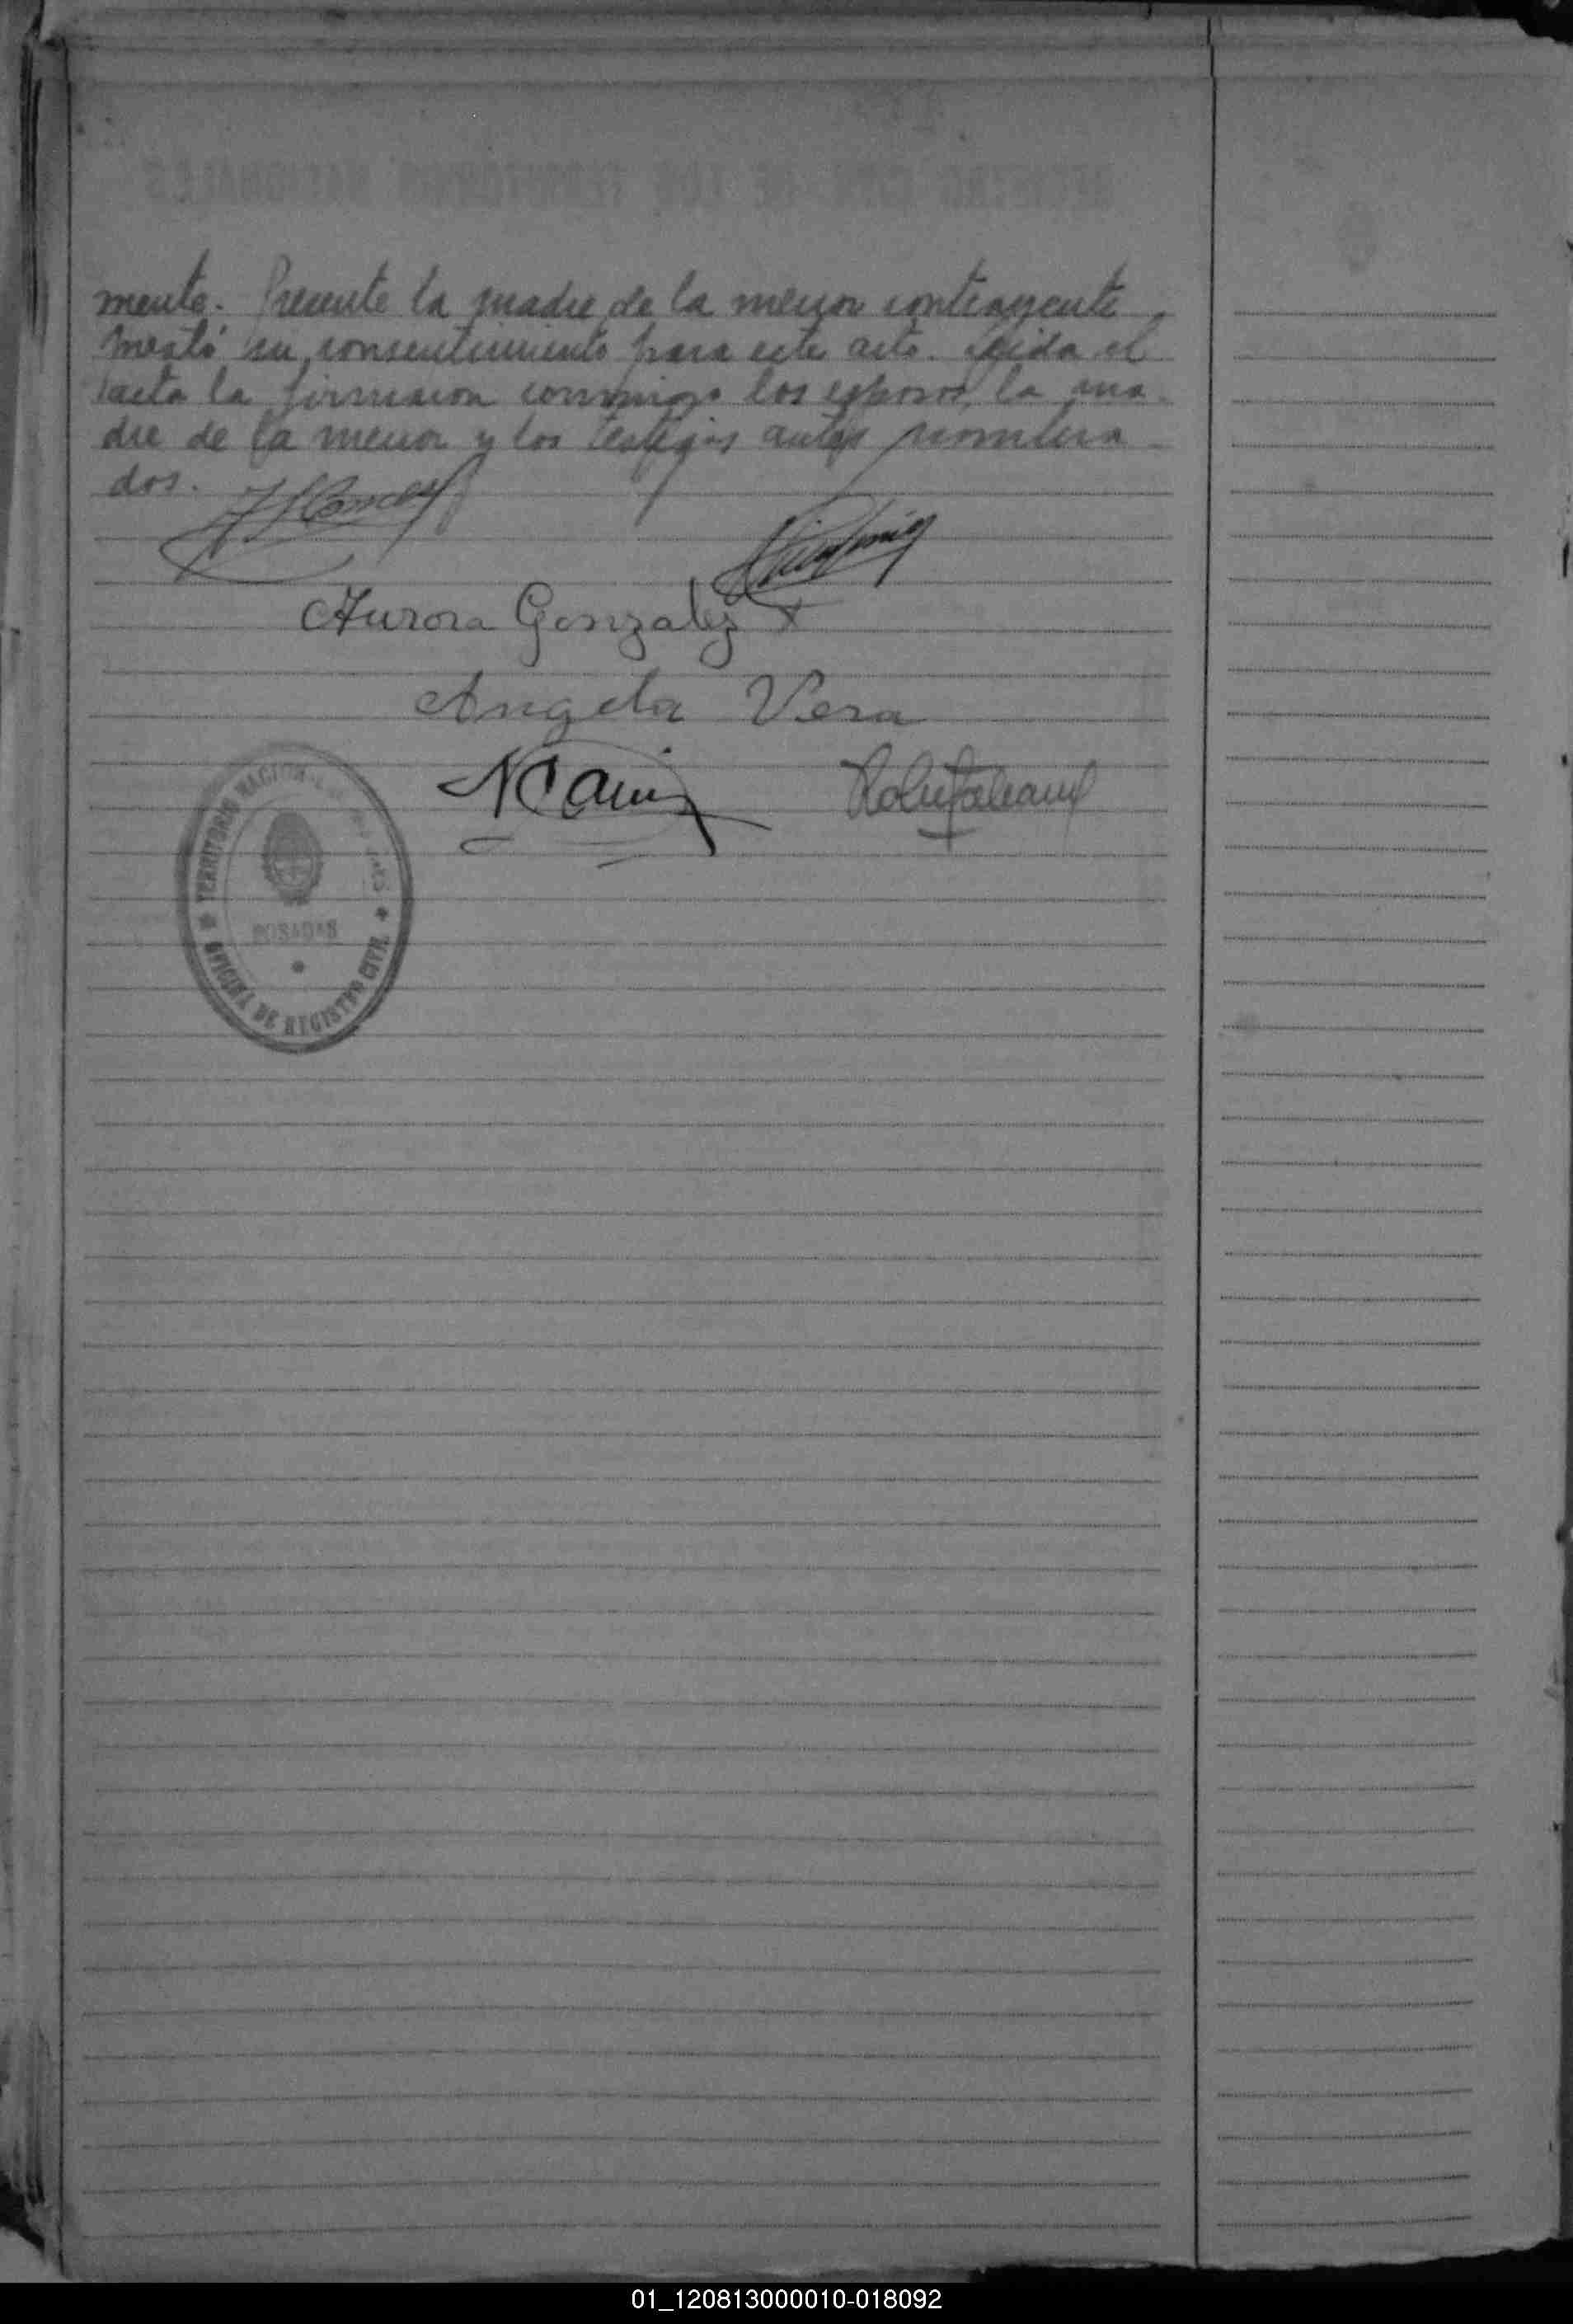 mente. Presente la madre de la menor contrayente
mestó su consentimiento para este acto. Leida el
acta la firmaron conmigo los esposos, la ma-
dre de la menor y los testigos antes nombra-
dos.
Aurora Gonzalez
Angela Vera
TERRITORIO NACIONAL
POSADAS
OFICINA DE REGISTRO CIVIL
01_120813000010-018092